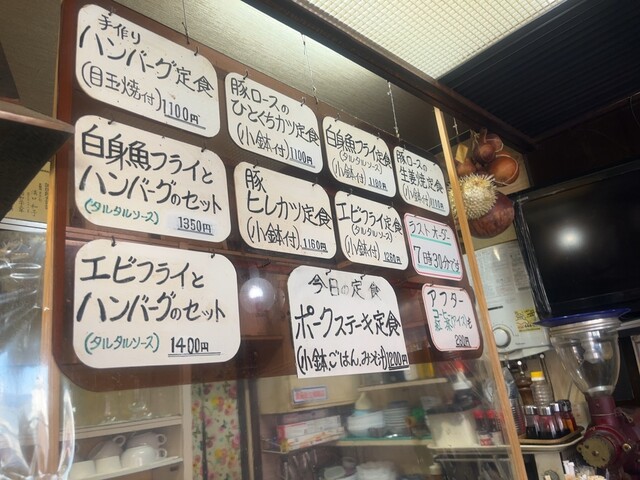 手作り
ハンバーグ定食
(目玉焼付)1100円
豚ロースの
ひとくちカツ定食
(小鉢付)1100円
白身魚フライ定食
(タルタルソース)
(小鉢付)1100円
豚ロースの
生姜焼定食
(小鉢付)
白身魚フライと
ハンバーグのセット
(タルタルソース) 1350円
豚
ヒレカツ定食
(小鉢付)1160円
エビフライ定食
(タルタルソース)
(小鉢付)1260円
ラストオーダー
7時30分です
エビフライと
ハンバーグのセット
(タルタルソース) 1400円
今日の定食
ポークステーキ定食
(小鉢ごはん、みそ汁)1200円
アフター